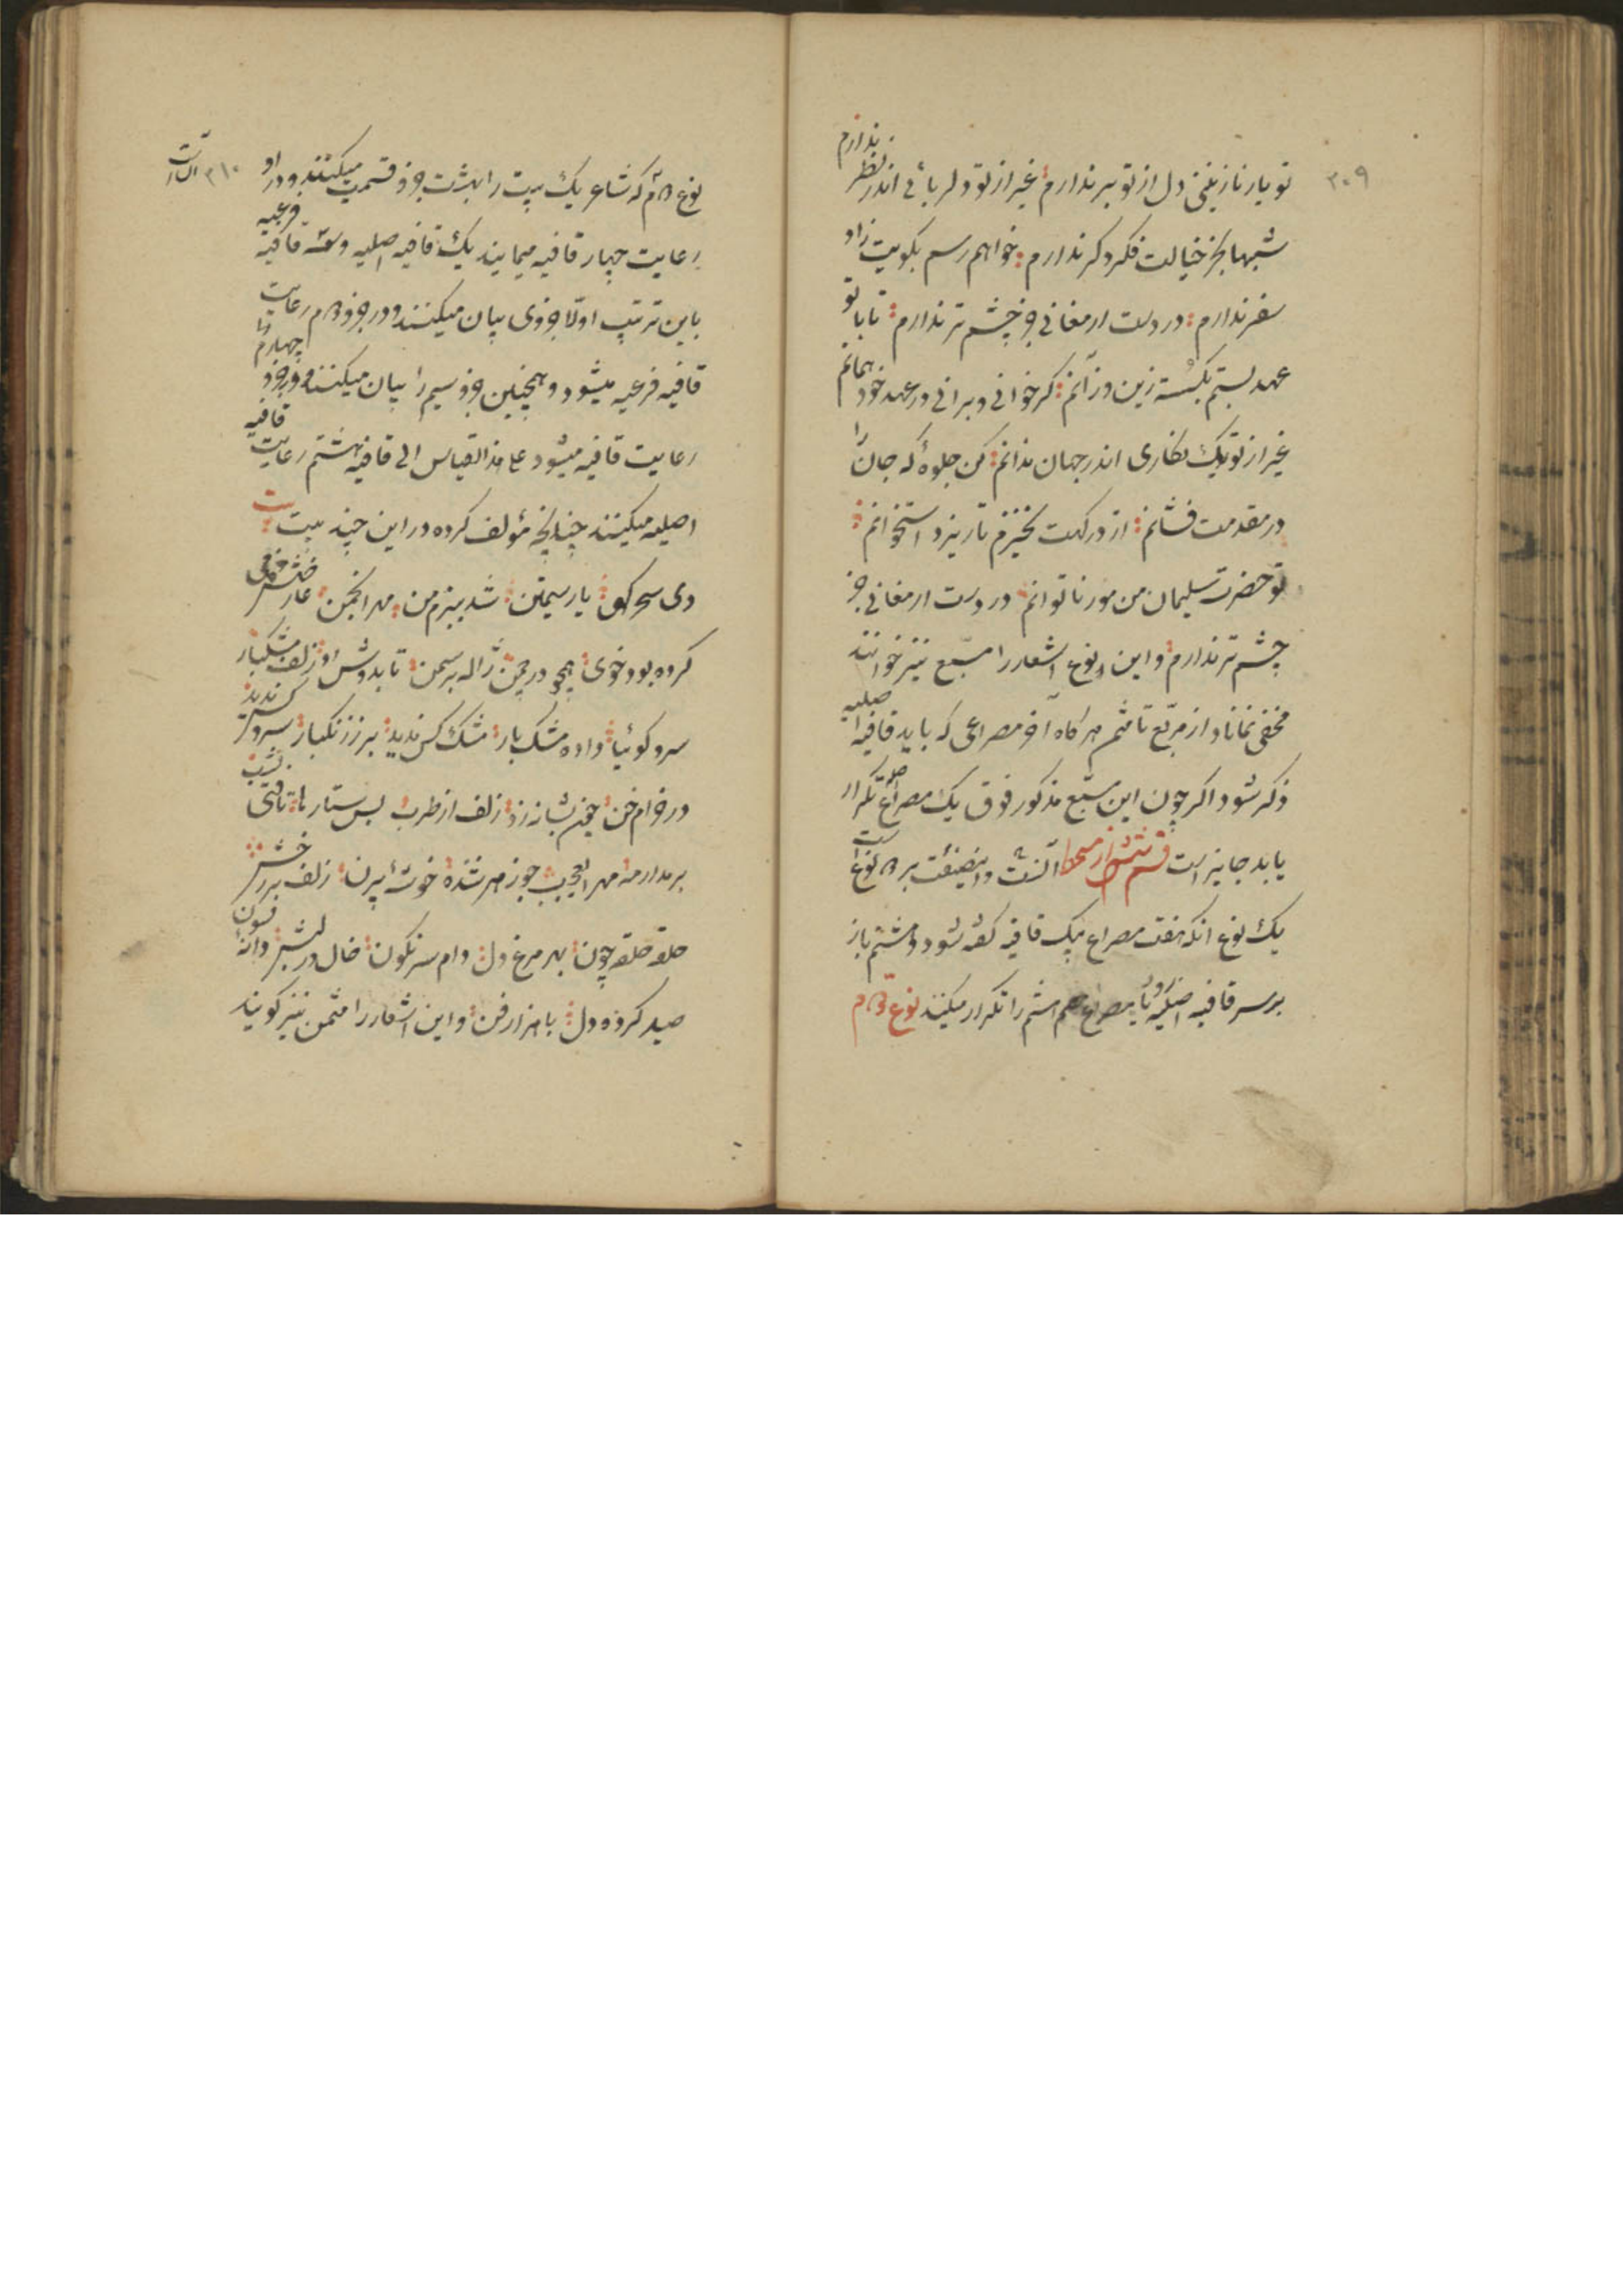 ۳۰۹
تو یار نازنینی دل از تو بر ندارم غیر از تو دلربائی اندر نظر ندارم
شبها بجز خیالت فکر دکر ندارم خواهم رسم بکویت زاد
سفر ندارم در دست ارمغانی جز چشم تر ندارم تا با تو
عهد بستم بکسسته زین و زآنم کر خوانی و برانی در عهد خود همانم
غیر از تو یک نکاری اندر جهان ندانم کن جلوهٔ که جان را
در مقدمت فشانم از درکهت نخیزم تا ریزد استخوانم
تو حضرت سلیمان من مور ناتوانم در دست ارمغانی جز
چشم تر ندارم و این نوع اشعار را مسبّع نیز خوانند
مخفی نماناد از مربّع تا مثمن هر کاه آخر مصراعی که باید قافیه اصلیه
ذکر شود اکر چون این مسبّع مذکور فوق یک مصراع تکرار
یابد جایز است قسم ششم از مسمط آنست و اینصنعت بر دو نوع است
یک نوع آنکه هفت مصراع بیک قافیه کفته شود و هشتم باز
بر سر قافیه اصلیه و یا مصراع هشتم را تکرار میکنند نوع دوم
۳۱۰
نوع دوم که شاعر یک بیت را بهشت جزو قسمت میکنند و در او
رعایت چهار قافیه مینمایند یک قافیه اصلیه و سه قافیه فرعیه
باین ترتیب اوّلا جزوی بیان میکنند و در جزو دوم رعایت
قافیه فرعیه میشود و همچنین جزو سیم را بیان میکنند و در جزو چهارم
رعایت قافیه میشود علی هذا القیاس الی قافیه هشتم رعایت قافیه
اصلیه میکنند چنانچه مؤلف کرده در این چند بیت
دی سحر کهی یار سیمتن شد ببزم من مهر انجمن عارضش
کرده بود خوی همچو در چمن ژاله بر سمن تا بدوش او زلف مشکبار
سر و کوئیا داده مشک بار مشک کس ندید سرو کس ندید
در خرام خن چین بشانه زد زلف از طرب بس ستاره ها تافتی بشب
بر مدار مه مهر العجب جوزهر شده خوشهٔ پرن زلف بر رخش
حلقه حلقه چون بهر مرغ دل دام سرنکون خال در لبش دانه فسون
صید کرده دل با هزار فن و این اشعار را مثمن نیز کویند